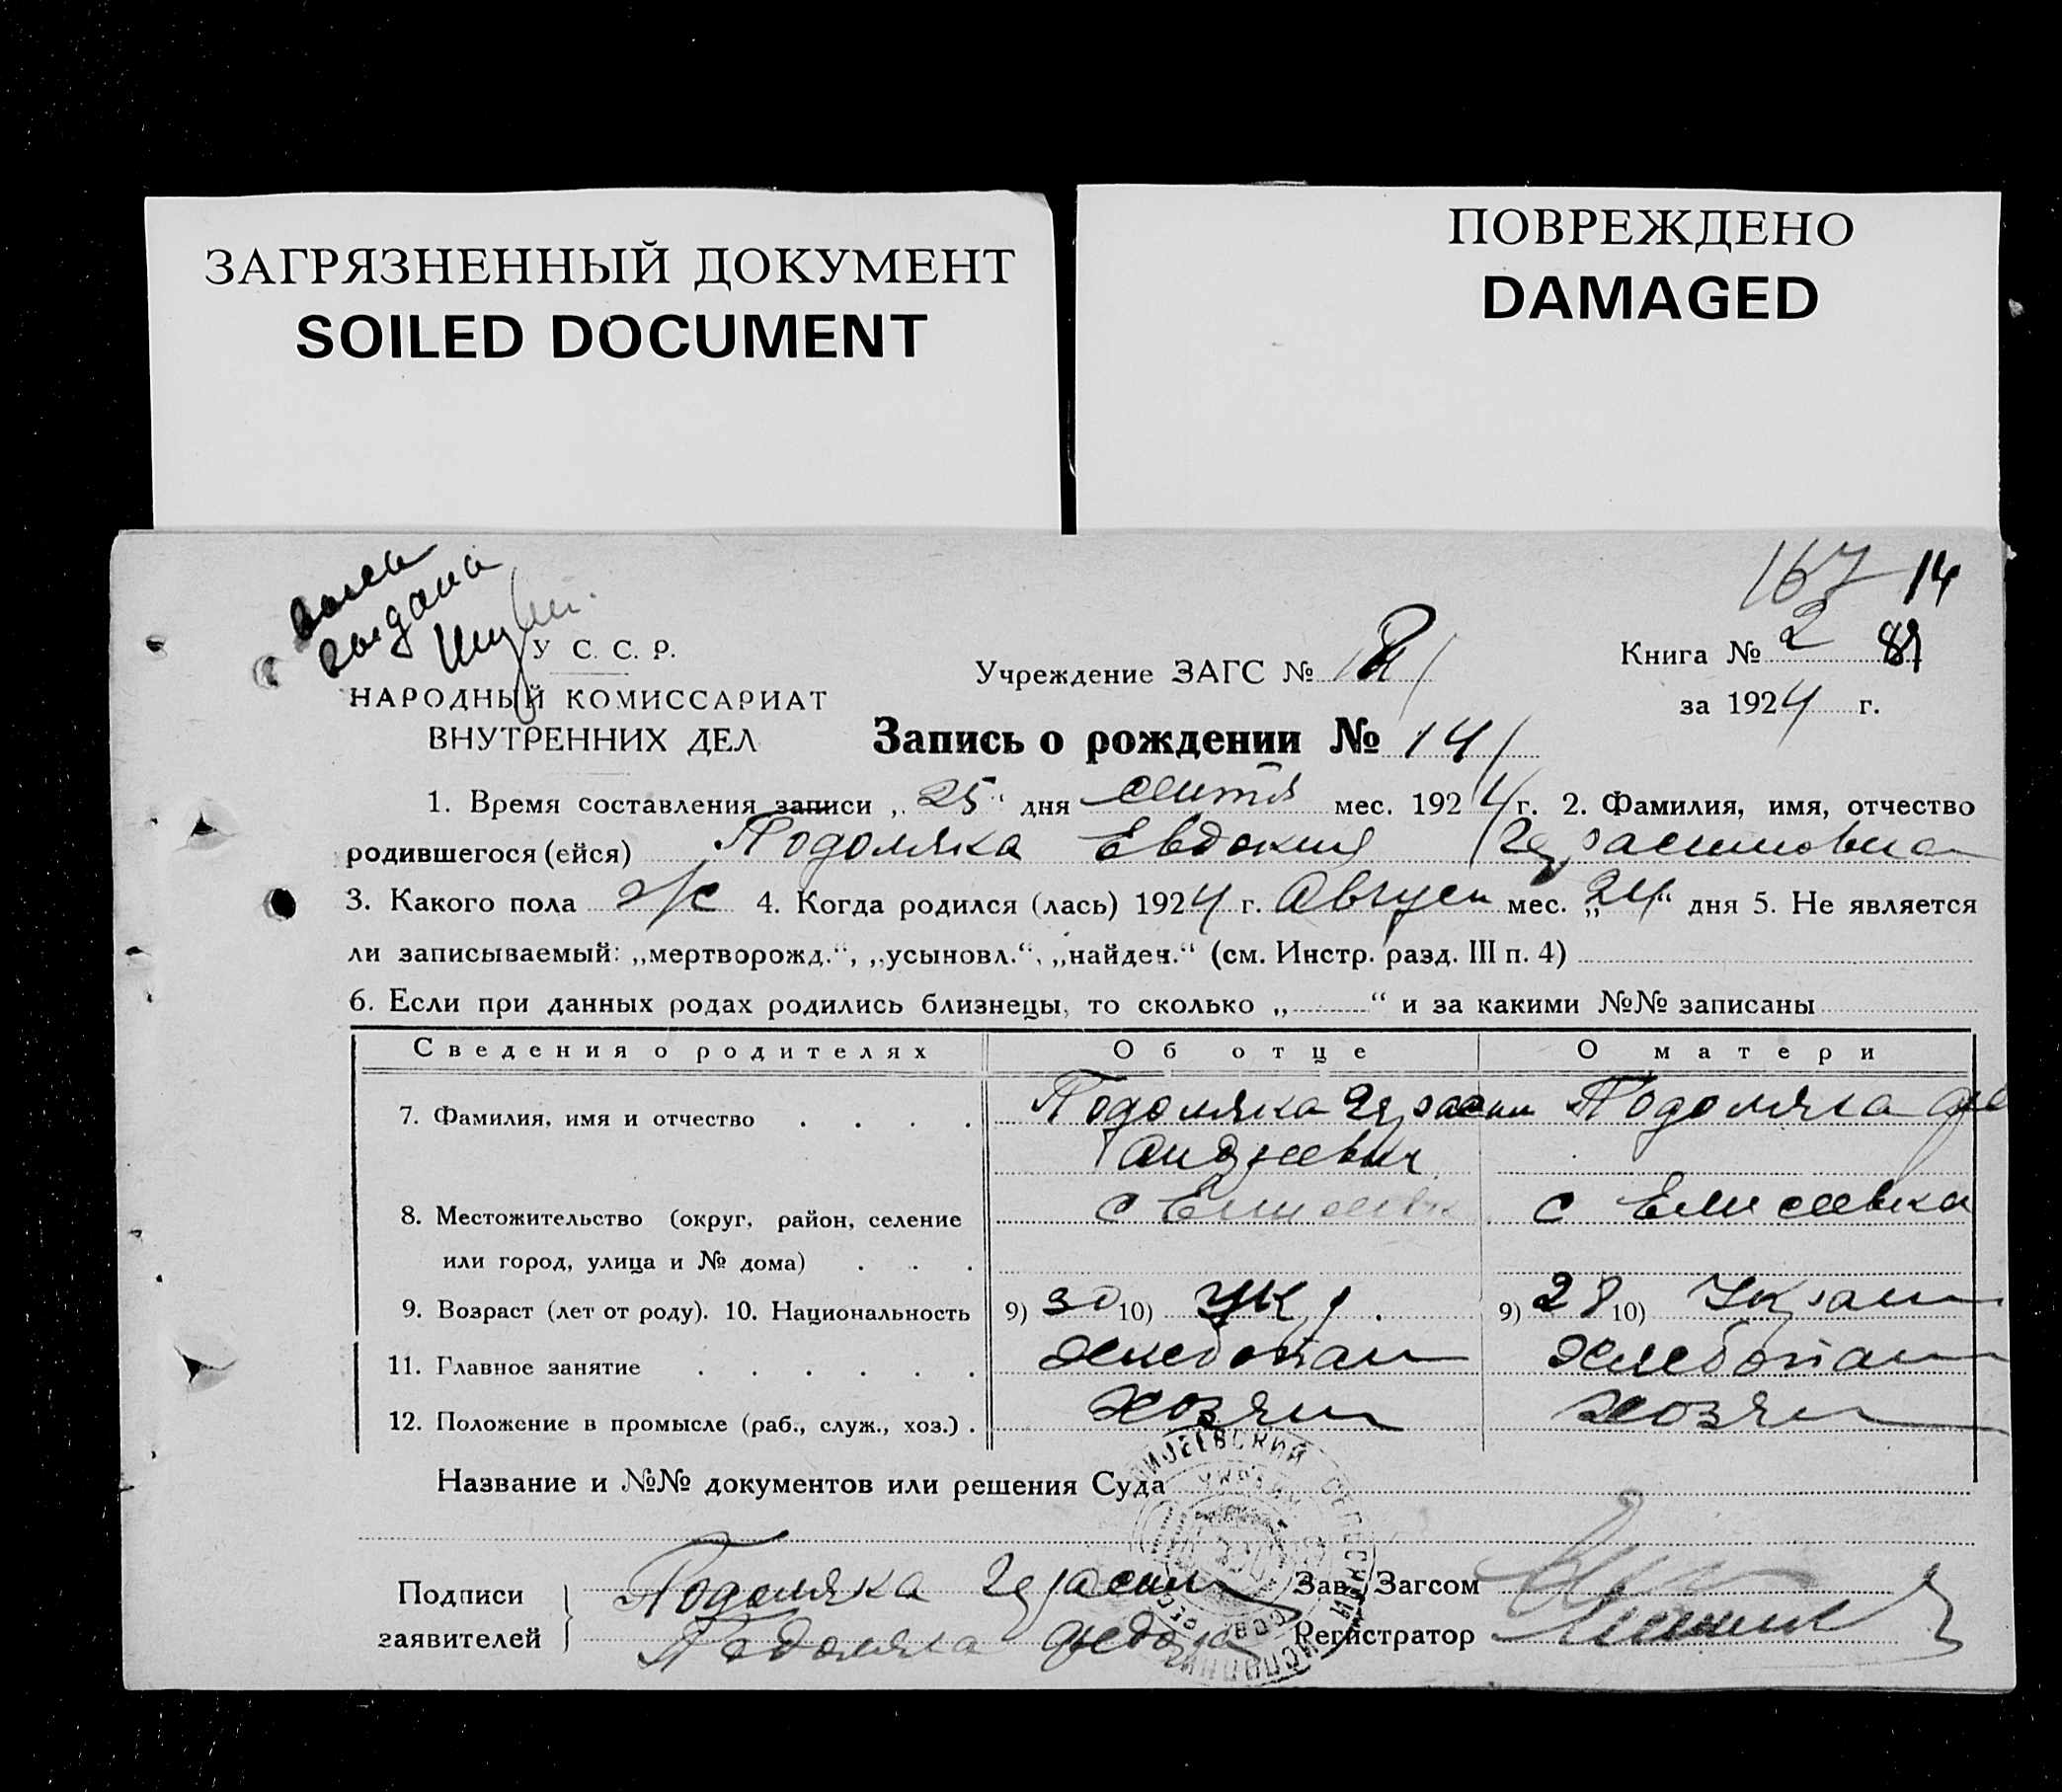 ЗАГРЯЗНЕННЫЙ ДОКУМЕНТ
SOILED DOCUMENT
ПОВРЕЖДЕНО
DAMAGED
167 14
У С. С. Р.
НАРОДНЫЙ КОМИССАРИАТ
ВНУТРЕННИХ ДЕЛ
Учреждение ЗАГС №
Книга № 2 89
за 1924 г.
Запись о рождении № 141
1. Время составления записи „25“ дня мес. 1924 г. 2. Фамилия, имя, отчество
родившегося (ейся) Подоляка Евдокия Герасимовна
3. Какого пола ж 4. Когда родился (лась) 1924 г. Август мес. „24“ дня 5. Не является
ли записываемый: „мертворожд.“, „усыновл.“, „найден.“ (см. Инстр. разд. III п. 4)
6. Если при данных родах родились близнецы, то сколько „ “ и за какими №№ записаны
Сведения о родителях Об отце О матери
7. Фамилия, имя и отчество Подоляка Герасим Подоляка
Андреевич
8. Местожительство (округ, район, селение с Елисеевк с Елисеевка
или город, улица и № дома)
9. Возраст (лет от роду). 10. Национальность 9) 30 10) Укр. 9) 28 10) Украин
11. Главное занятие хлебопаш хлебопаш
12. Положение в промысле (раб., служ., хоз.) хозяин хозяин
Название и №№ документов или решения Суда
Подписи Подоляка Герасим Зав. Загсом
заявителей Подоляка Регистратор